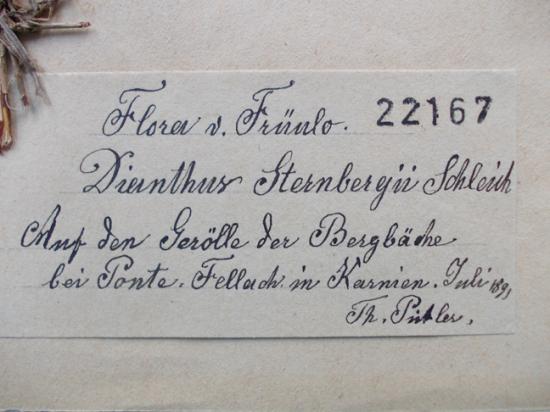 Flora v. Früulo. 22167
Dianthus Sternbergii Schleich
Auf den Gerölle der Bergbäche
bei Ponte. Fellach in Karnien. Juli 1891
Th. Pichler.